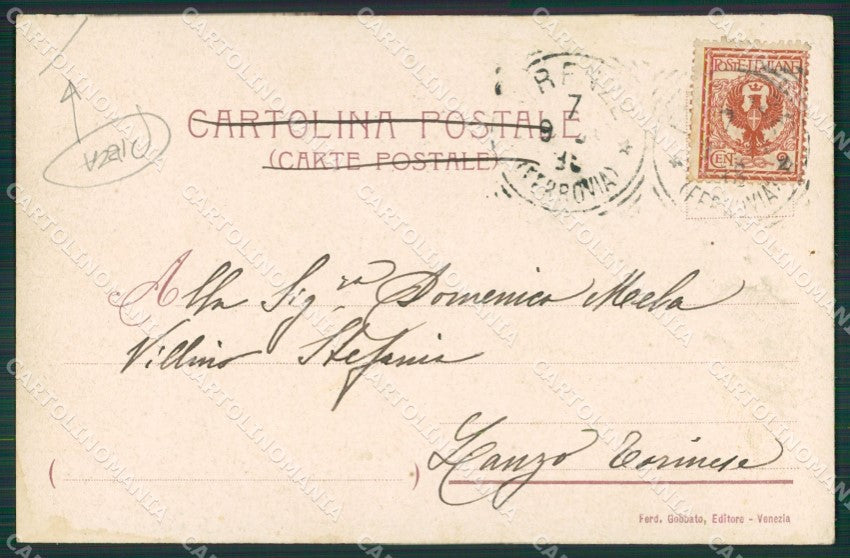 CARTOLINA POSTALE
(CARTE POSTALE)
POSTE ITALIANE
CENT. 2
(FERROVIA)
(FERROVIA)
Alla Sig.ra Domenica Mela
Villino Stefania
Lanzo Torinese
Ferd. Gobbato, Editore - Venezia
CARTOLINOMANIA